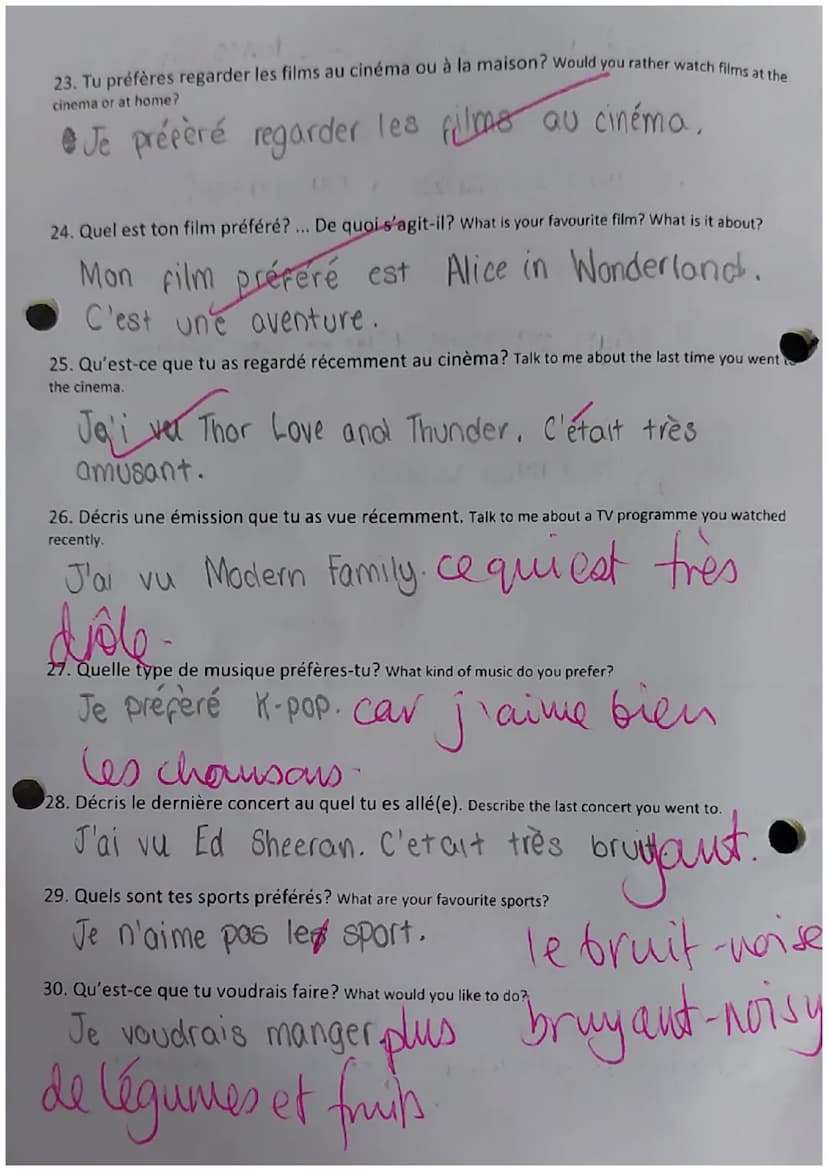 23. Tu préfères regarder les films au cinéma ou à la maison? Would you rather watch films at the
cinema or at home?
Je préfèré regarder les films au cinéma.
24. Quel est ton film préféré? ... De quoi s'agit-il? What is your favourite film? What is it about?
Mon film préféré est Alice in Wonderland.
C'est une aventure.
25. Qu'est-ce que tu as regardé récemment au cinèma? Talk to me about the last time you went to
the cinema.
Ja'i vu Thor Love and Thunder. C'était très
amusant.
26. Décris une émission que tu as vue récemment. Talk to me about a TV programme you watched
recently.
J'ai vu Modern Family. ce qui est très
drôle.
27. Quelle type de musique préfères-tu? What kind of music do you prefer?
Je préfèré K-pop. car j'aime bien
les chansons.
28. Décris le dernière concert au quel tu es allé(e). Describe the last concert you went to.
J'ai vu Ed Sheeran. C'etait très bruyant.
29. Quels sont tes sports préférés? What are your favourite sports?
Je n'aime pas le sport.
le bruit - noise
30. Qu'est-ce que tu voudrais faire? What would you like to do?
bruyant - noisy
Je voudrais manger plus
de légumes et fruits.